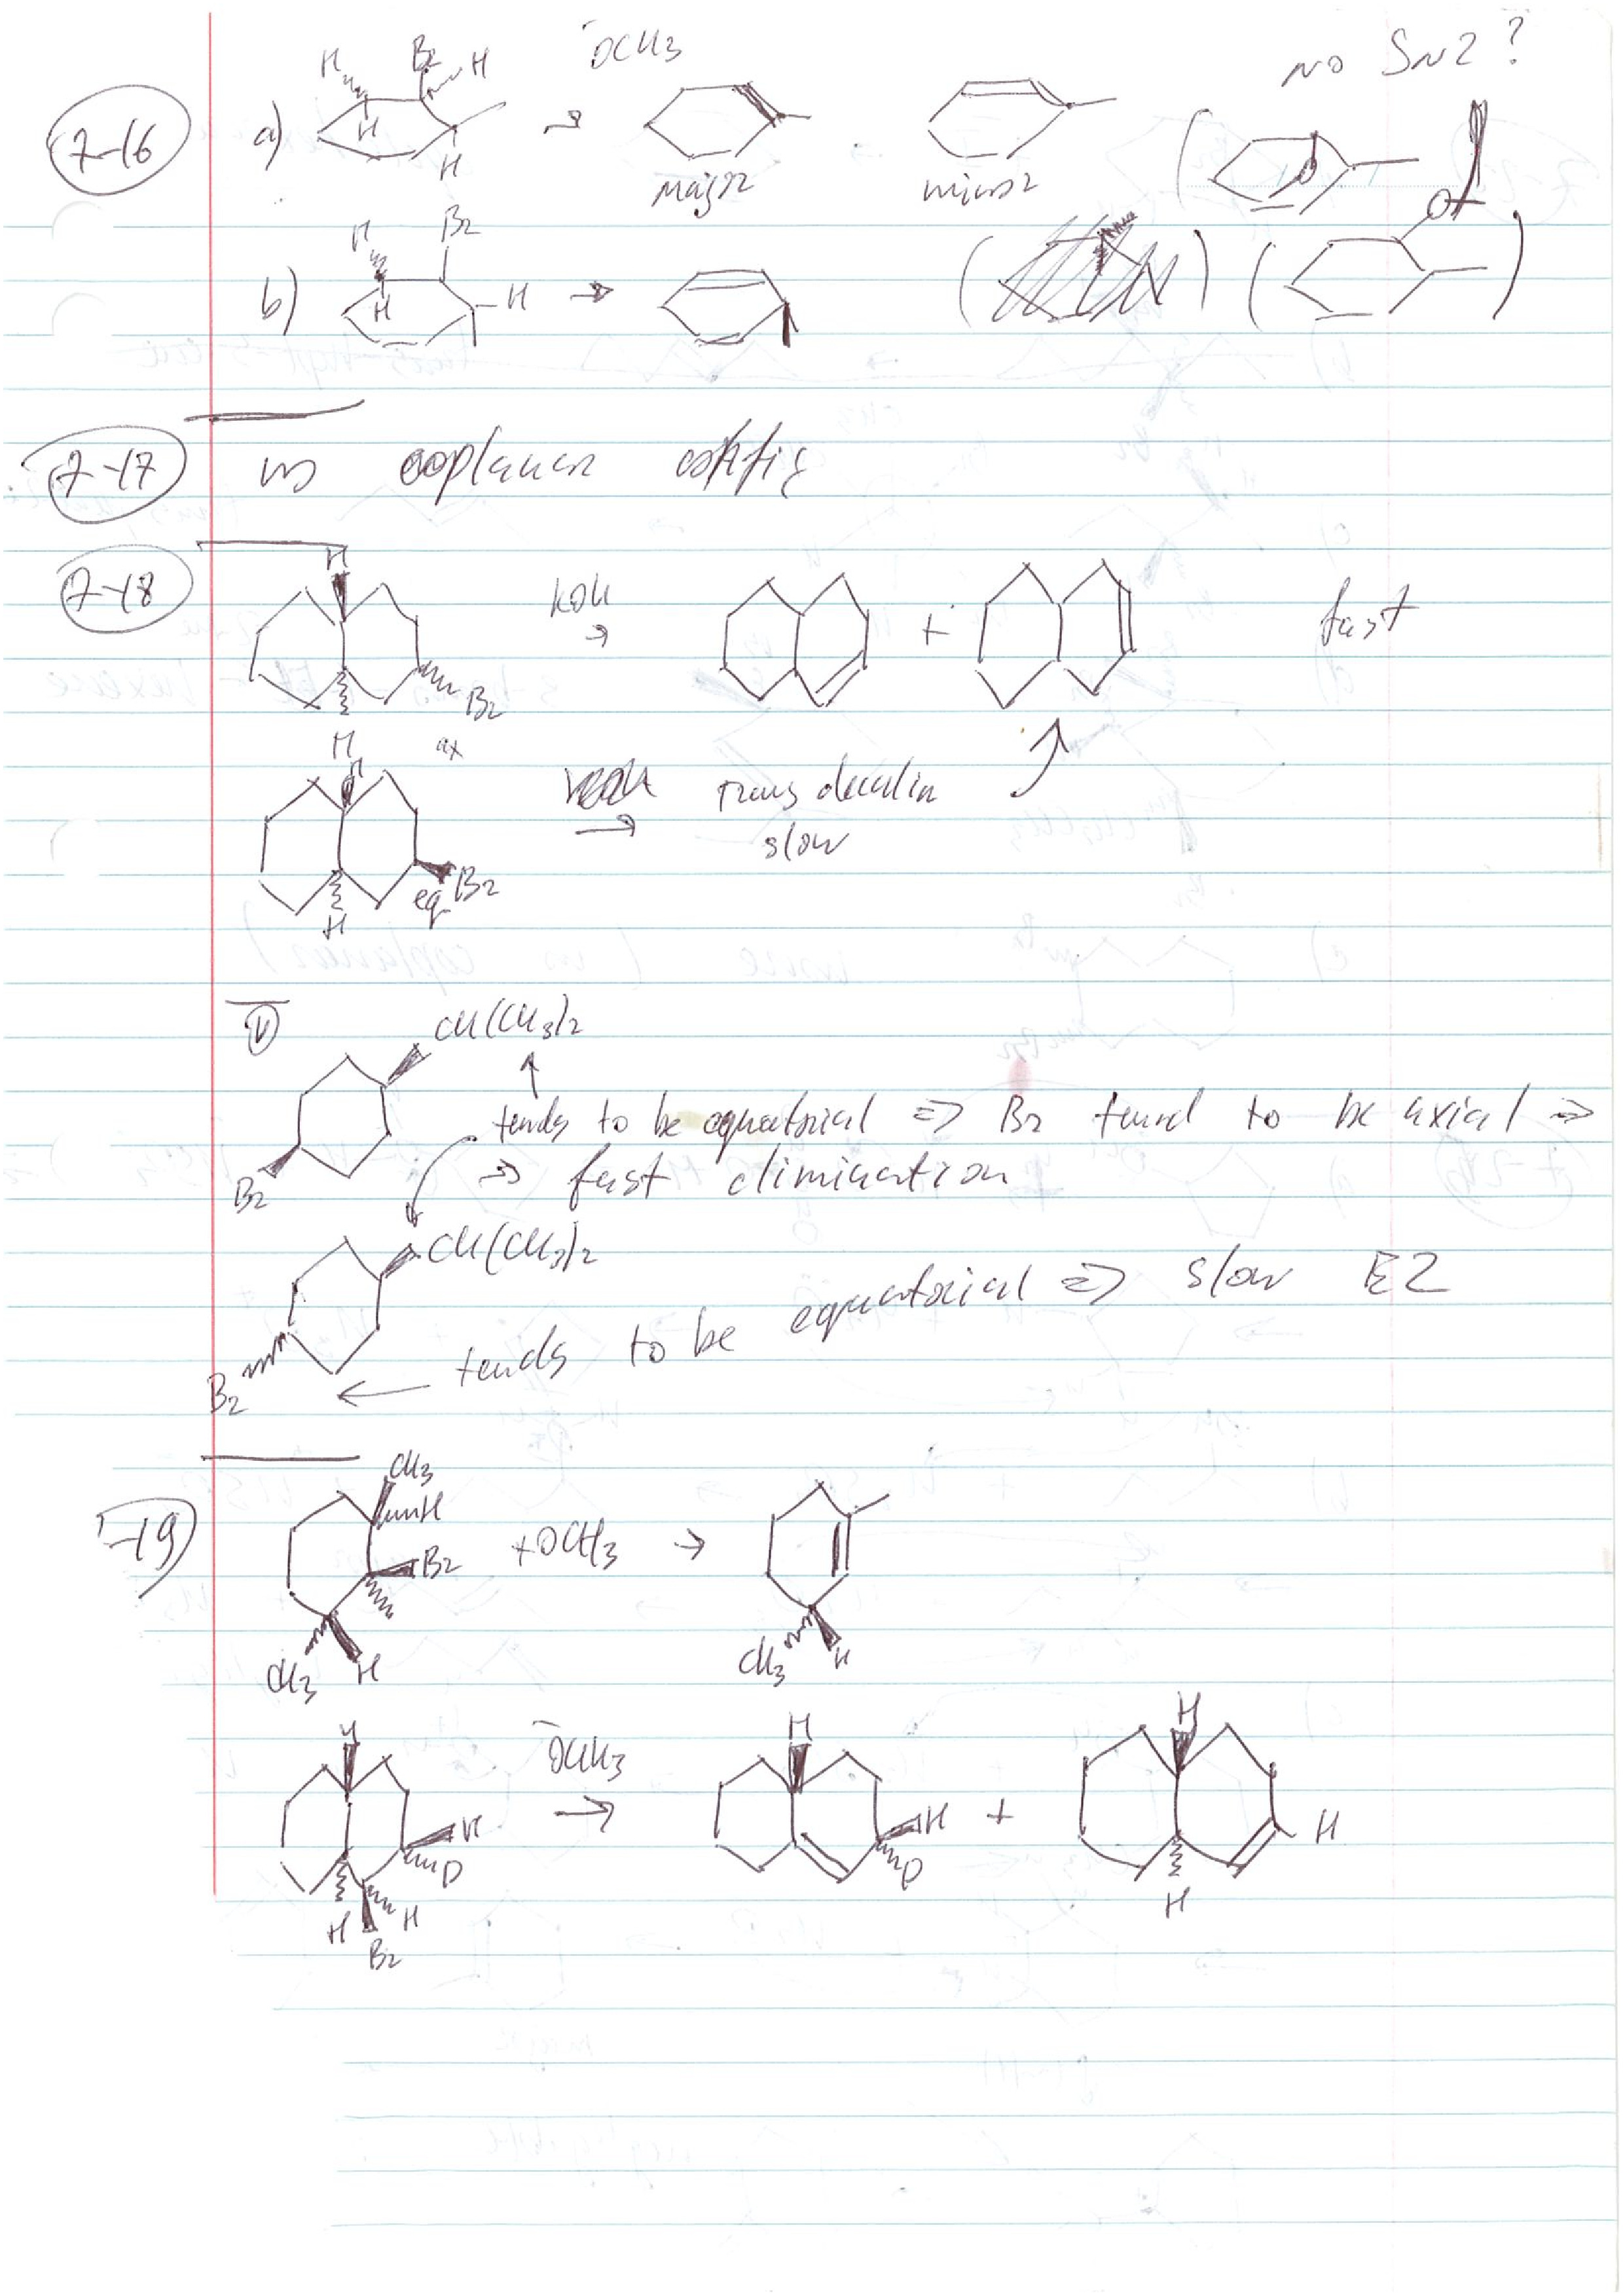 7-16 a) H Br H H H ⁻OCH3 → major minor no SN2 ?
b) H Br H H →
7-17 no coplanar config
7-18 H Br KOH → + fast
ax
H Br H eq → trans decalin
slow
CH(CH3)2
tends to be equatorial ⇒ Br tend to be axial ⇒
Br ⇒ fast elimination
CH(CH3)2
Br tends to be equatorial ⇒ slow E2
-19 CH3 H Br CH3 H + OCH3 → CH3 H
H H D H H Br ⁻OCH3 → H H D + H H H